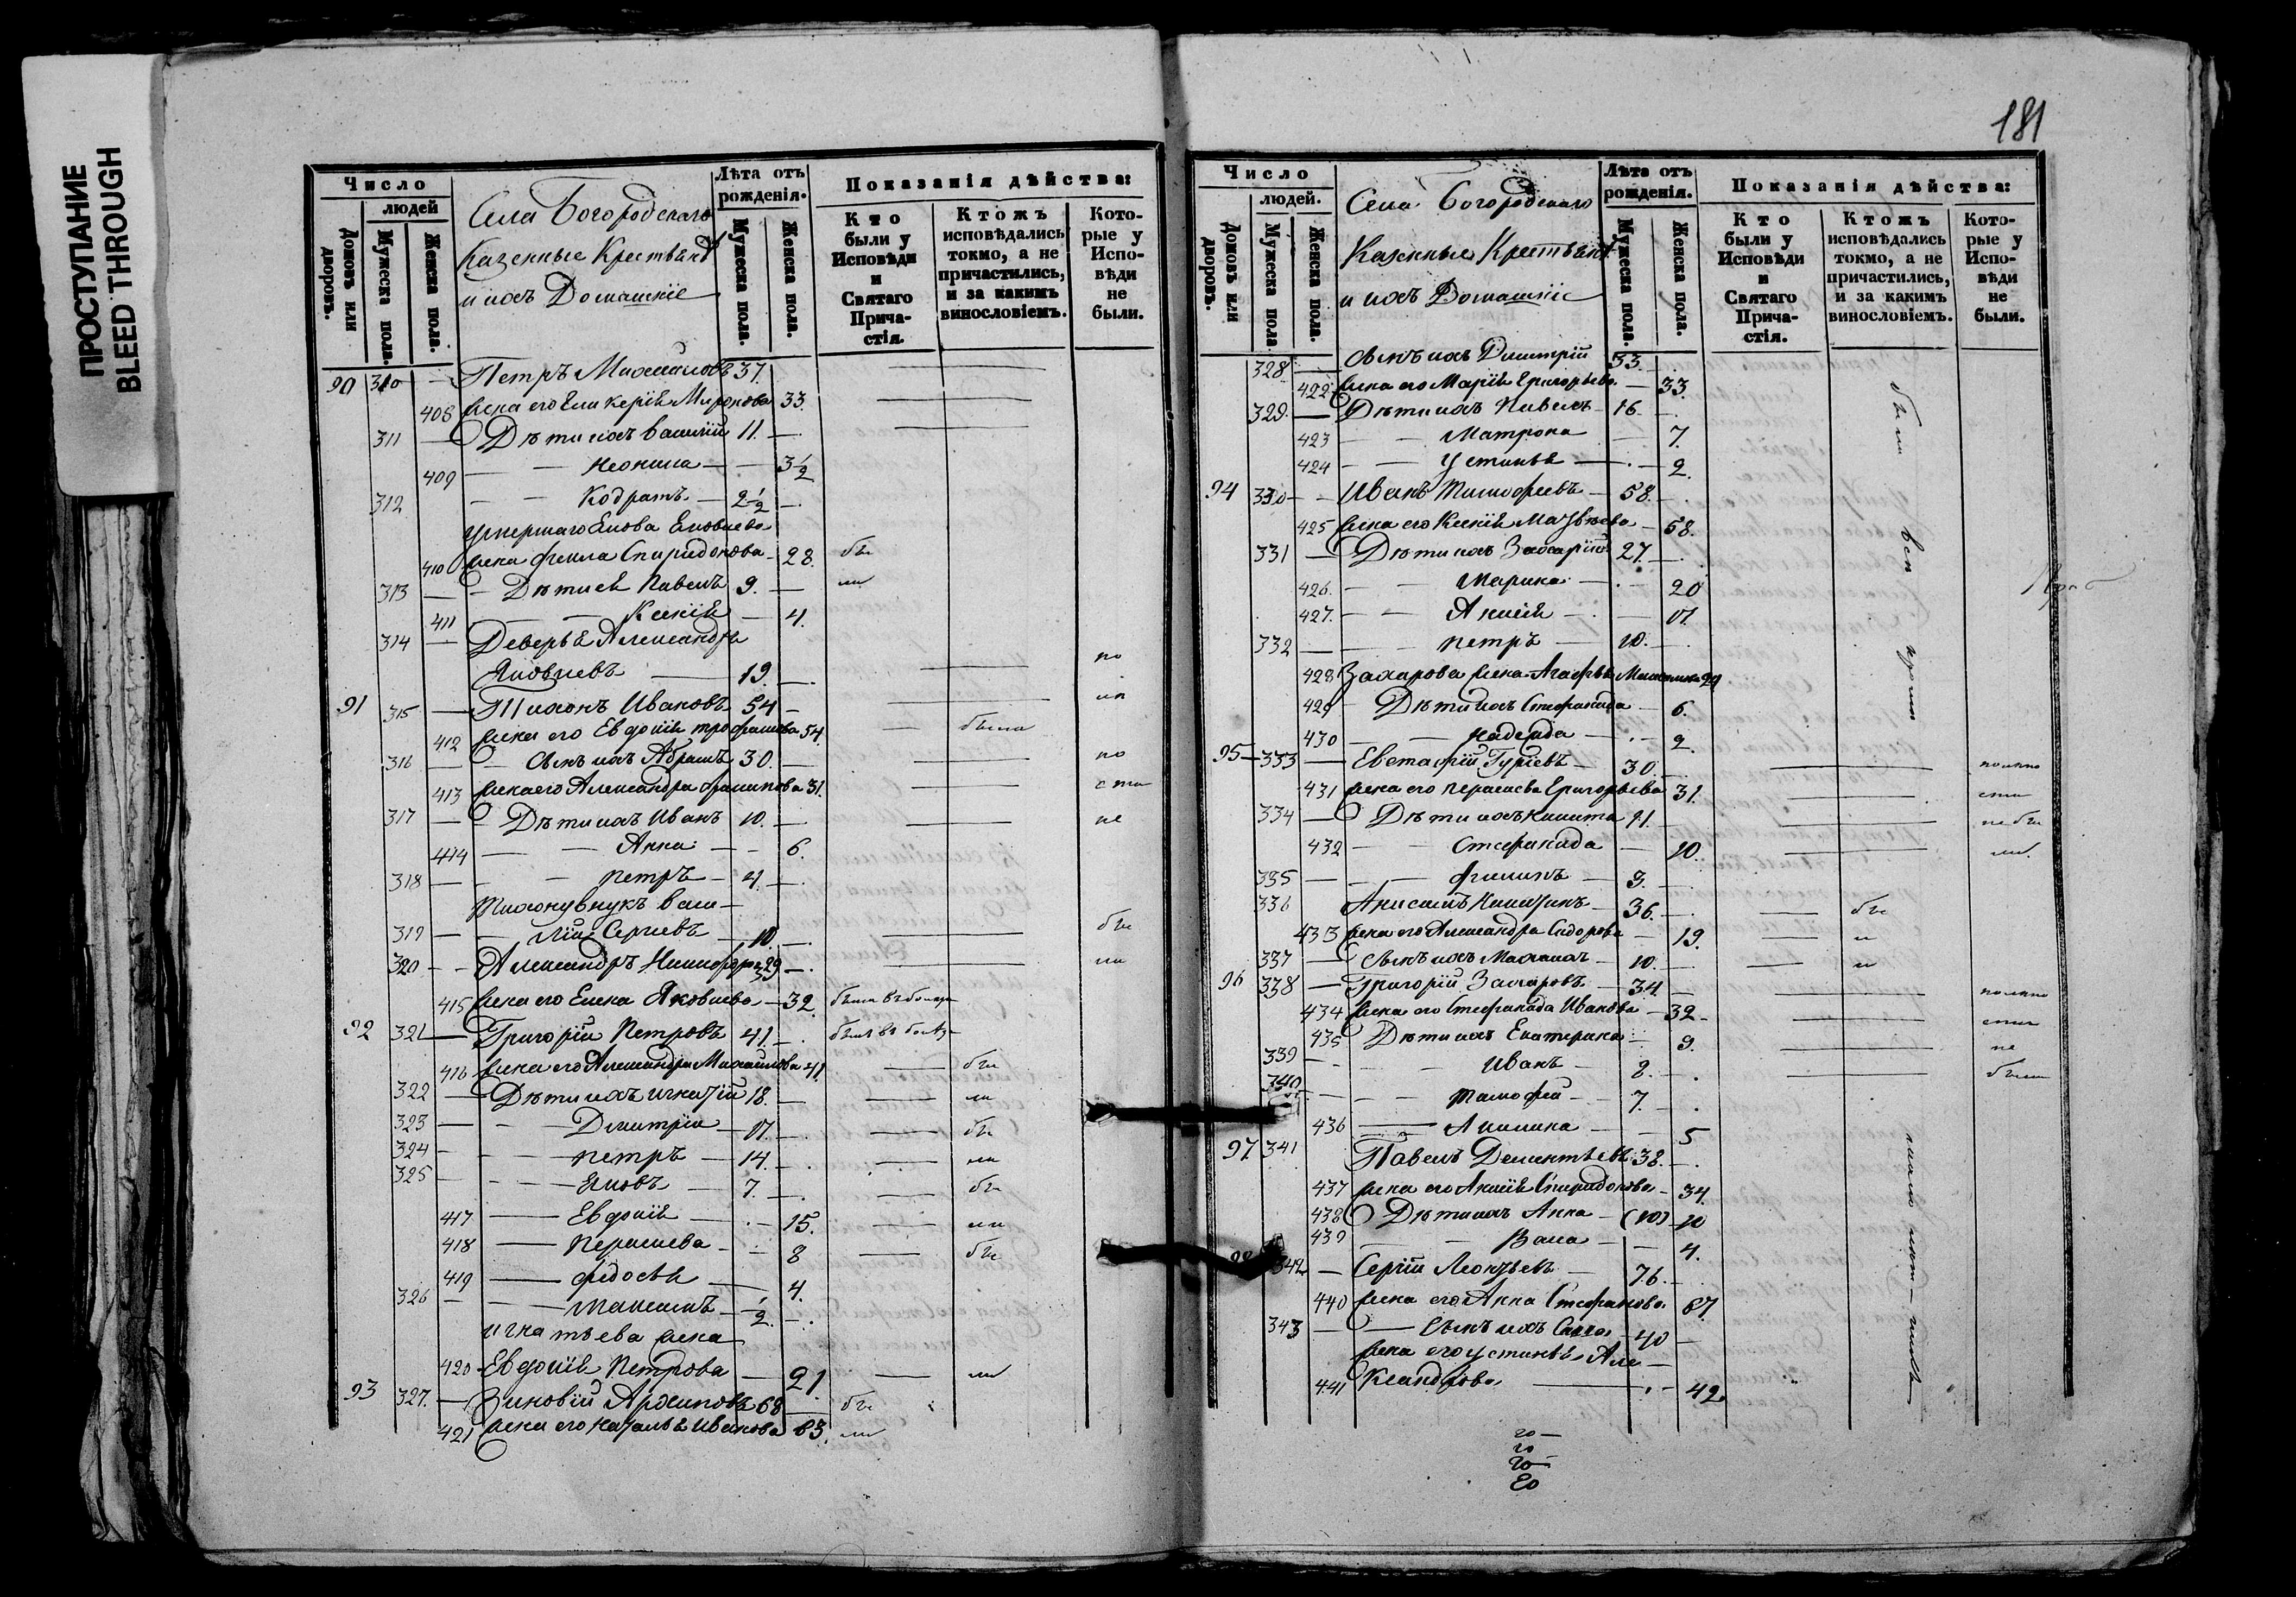 ПРОСТУПАНИЕ
BLEED THROUGH
Число
людей
Домовъ или дворовъ.
Мужеска пола.
Женска пола.
Села Богородскаго
Казенные Крестьяне
и ихъ Домашніе
Лѣта отъ рожденія.
Мужеска пола.
Женска пола.
Показанія дѣйства:
Кто были у Исповѣди и Святаго Причастія.
Ктожъ исповѣдались токмо, а не причастились, и за какимъ винословіемъ.
Которые у Исповѣди не были.
90 310 — Петръ Михайловъ 37.
408 жена его Гликерія Миронова 33.
311 — Дѣти ихъ Василій 11. —
409 — — Неонила — — 3½
312 — — Кодратъ — 2½ —
умершаго Іакова Іаковлева
410 жена Фекла Спиридонова — 28. бы
313 — — Дѣти ея Павелъ 9. — ли
411 — — Ксенія — 4.
314 — Деверь ея Александръ
Яковлевъ — 19. — по
91 315 — Тихонъ Ивановъ 54 —
412 жена его Евдокія Трофимова 54. — были
316 — — Сынъ ихъ Абрамъ 30. — по
413 жена его Александра 31. — сти
317 — — Дѣти ихъ Иванъ 10. — не
414 — — Анна — — 6.
318 — — петръ — 4. —
Тихону внукъ Васи—
319 — — лій Сергіевъ — 10. — бы
320 — — Александръ Никифоръ 29 — ли
415 жена его Елена Яковлева — 32.
92 321 — Григорій Петровъ 41. —
416 жена его Александра Михайлова 41. — бы
322 — Дѣти ихъ Игнатій 18. — ли
323 — — Дмитрій — 17. — бы
324 — — петръ — 14. — ли
325 — — Яковъ — 7. — бы
417 — Евдокія — 15. — ли
418 — Параскева — 8 — бы
419 — Федосья — 4.
326 — — Максимъ — ½. —
Игнатьева жена
420 Евдокія Петрова — 21. — ли
93 327. — Зиновій Архиповъ 68 — бы
421 жена его Наталья Иванова 63. ли
181
Число
людей.
Домовъ или дворовъ.
Мужеска пола.
Женска пола.
Села Богородскаго
Казенные Крестьяне
и ихъ Домашніе
Лѣта отъ рожденія.
Мужеска пола.
Женска пола.
Показанія дѣйства:
Кто были у Исповѣди и Святаго Причастія.
Ктожъ исповѣдались токмо, а не причастились, и за какимъ винословіемъ.
Которые у Исповѣди не были.
328 — Сынъ ихъ Дмитрій 33.
422 жена его Марія Григорьева — 33.
329. — Дѣти ихъ Павелъ 16 —
423 — — Матрона — 7.
424 — — Устинья — — 2.
94 330 — — Иванъ Тимофеевъ — 58. —
425 жена его Ксенія Матвѣева — 58.
331 — Дѣти ихъ Захарій 27. —
426. — — Марина — 20
427. — — Акилія — — 17.
332 — — петръ — 10. —
428 Захарова жена Агафья 29
429 — Дѣти ихъ Стефанида — 6.
430 — — Надежда — — 2.
95 — 333 — Евстафій Гуріевъ — 30. —
431 жена его Параскева Григорьева 31. — сти
334 — Дѣти ихъ Никита 11. — не бы
432 — — Стефанида — 10. — ли.
335 — — — Филипъ — 3. —
336 Анисимъ — 36. — бы
433 жена его Александра Сидорова — 19. — ли
337 — Сынъ ихъ Михаилъ — 10. — ли
96 338 — Григорій Захаровъ — 34. —
434 жена его Стефанида Иванова — 32 — сти
435 Дѣти ихъ Екатерина — 9. — не
339 — — — Иванъ — 8. — были
340 — — — Тимофей — 7. —
436 — Акилина — 5
97 341 Павелъ Дементьевъ 38. —
437 жена его Акилія Спиридонова — 34.
438 Дѣти ихъ Анна — (10) 10
439 — — Васа — — 4.
98 342 — Сергій Леонтьевъ — 76. —
440 жена его Анна Стефанова 67.
343 — — Сынъ ихъ Савва — 40 —
жена его Устинья Але—
441 ксандрова — 42.